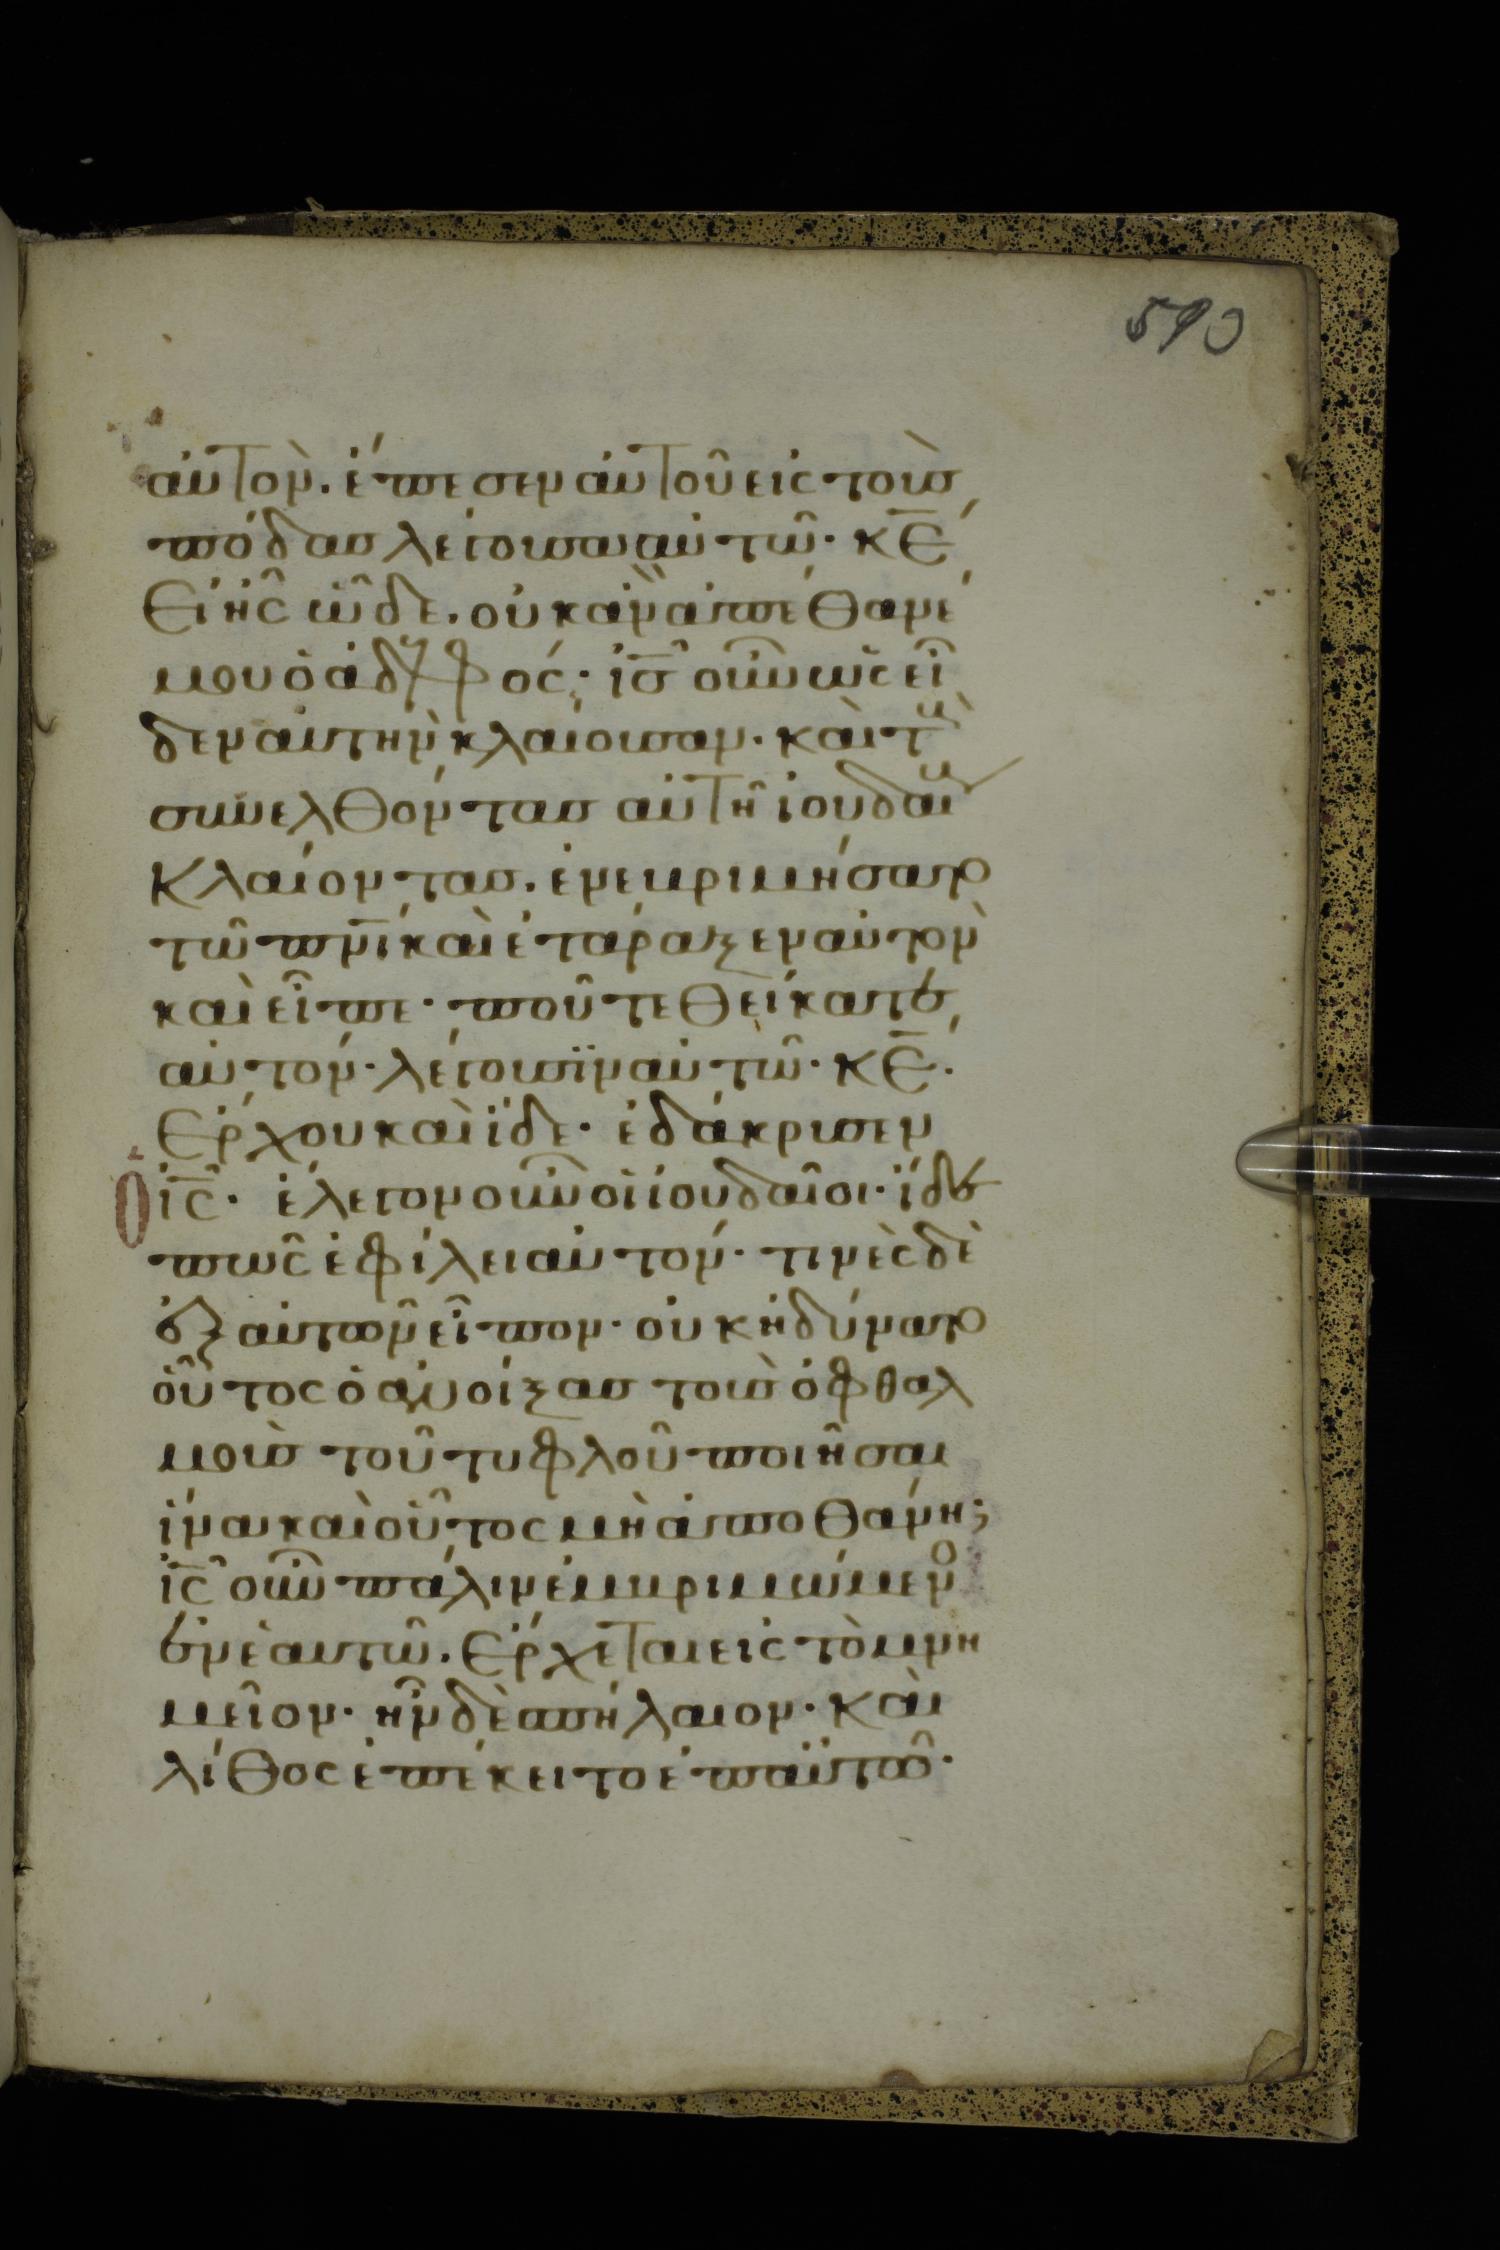 590
αὐτὸν. ἔπεσεν αὐτοῦ εἰς τοὺς
πόδας λέγουσα αὐτῶ· κ̅ε̅
Εἰ ἦς ὧδε. οὐκ ἂν ἀπέθανέ
μου ὁ ἀδελφός· ι̅ς̅ οὖν ὡς εἶ
δεν αυτὴν κλαίουσαν. καὶ τοὺς
συνελθόντας αὐτῆ ἰουδαίους
Κλαίοντας. ἐνεβριμήσατο
τῶ π̅ν̅ι̅ καὶ ἐτάραξεν αὑτὸν
καὶ εἶπε· ποῦ τεθείκατε
αὐτόν· λέγουσϊν αὐτῶ· κ̅ε̅.
Ἔρχου καὶ ἴδε· ἐδάκρυσεν
Ὁ ι̅ς̅· ἔλεγον οὖν οἱ ἰουδαῖοι· ἴδε
πῶς ἐφίλει αὐτόν· τινὲς δὲ
ἐξ αὐτῶν εἶπον· οὐκ ἠδύνατο
οὗτος ὁ ἀνοίξας τοὺς ὀφθαλ
μοὺς τοῦ τυφλοῦ ποιῆσαι
ἵνα καὶ οὗτος μὴ ἀποθάνη;
ι̅ς̅ οὖν πάλιν ἐμβριμώμενος
ἐν ἑαυτῶ. Ἔρχεται εἰς τὸ μνη
μεῖον· ἦν δὲ σπήλαιον. καὶ
λίθος ἐπέκειτο ἐπαὐτῶ·